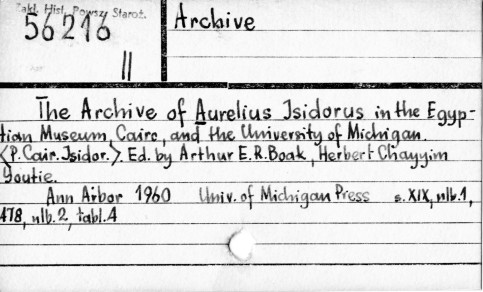 Zakł. Hist. Powsz. Staroż.
56216
II
Archive
The Archive of Aurelius Isidorus in the Egyp-
tian Museum, Cairo, and the University of Michigan.
<P. Cair. Isidor.>. Ed. by Arthur E.R. Boak, Herbert Chayyim
Youtie.
Ann Arbor 1960 Univ. of Michigan Press s. XIX, nlb. 1,
478, nlb. 2, tabl. 4